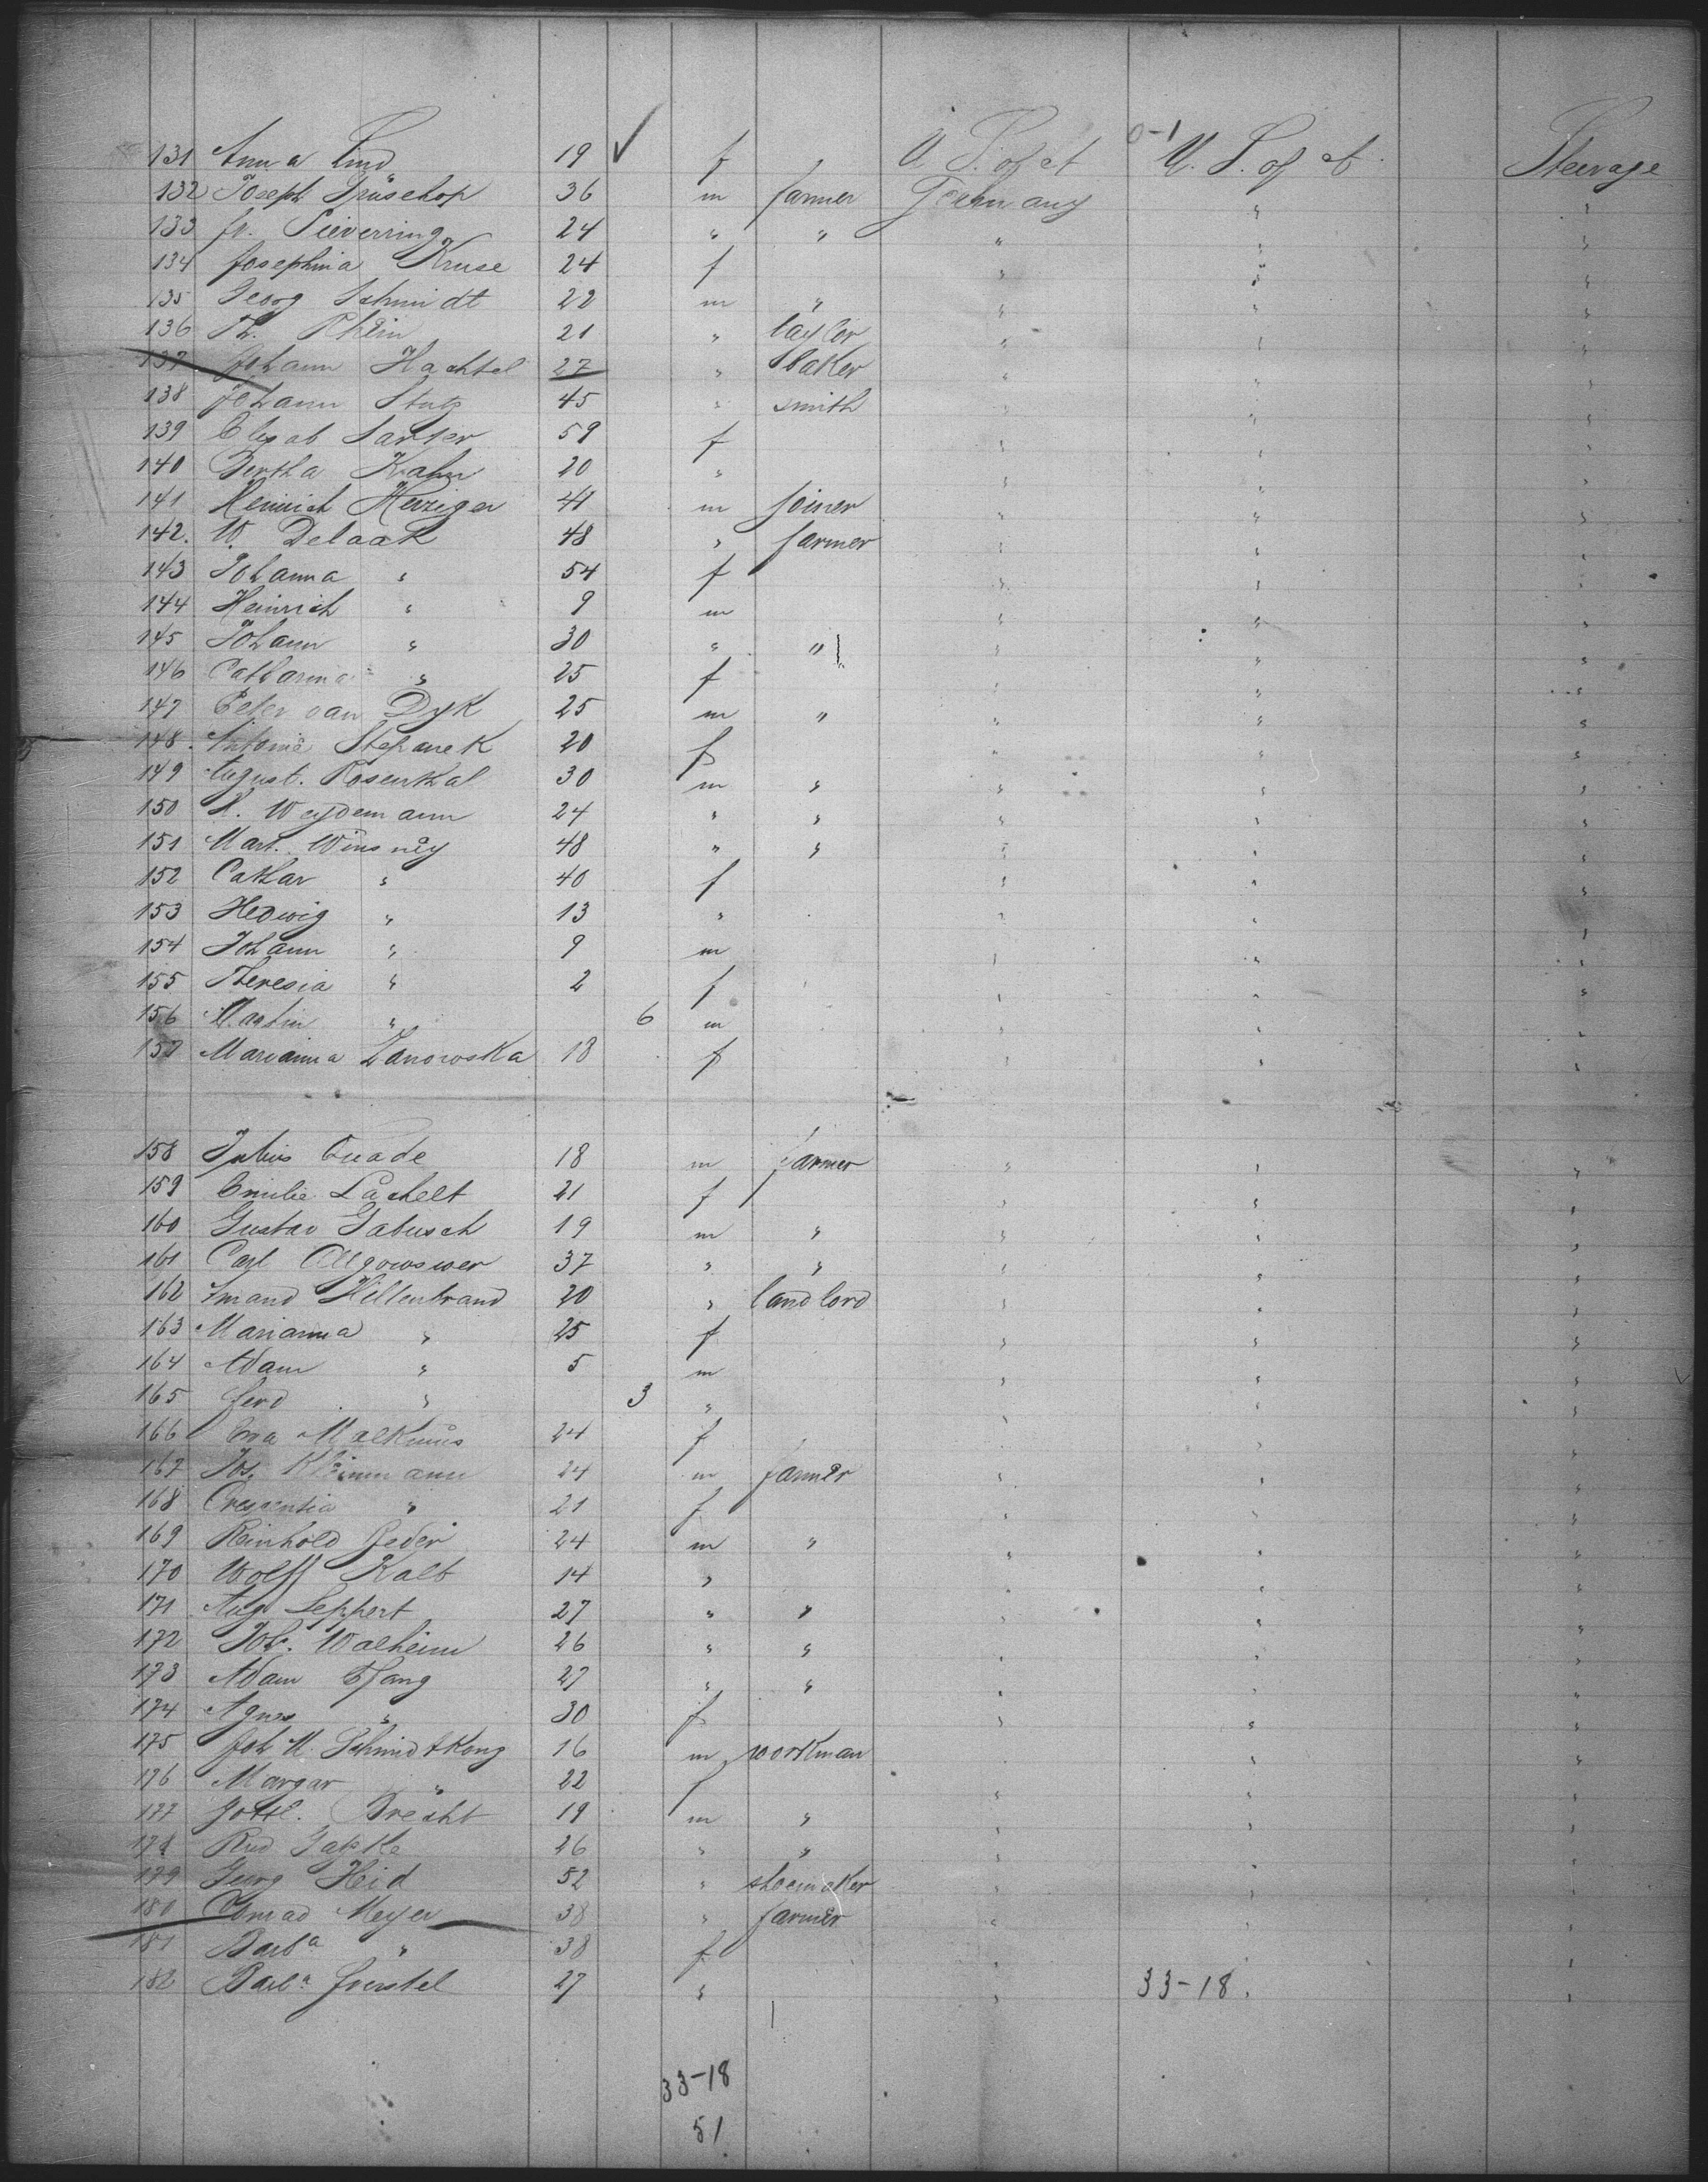 0-1
131 Anna Lind 19 ✓ f " U. S. of A U. S. of A. Steerage
132 Joseph Drüsehop 36 m farmer Germany " "
133 fr. Sieverring 24 " " " " "
134 Josephina Kruse 24 f " " "
135 Georg Schmidt 22 m " " " "
136 Th. Rhein 21 " taylor " " "
137 Johann Hachtel 27 " baker " " "
138 Johann Stutz 45 " smith " " "
139 Elisab Sarter 59 f " " "
140 Bertha Kahn 20 " " " "
141 Heinrich Herziger 41 m joiner " " "
142. W. Delaak 48 " farmer " " "
143 Johanna " 54 f " " "
144 Heinrich " 9 m " " "
145 Johann " 30 " " " " "
146 Catharina " 25 f " " "
147 Peter van Dyk 25 m " " " "
148. Antonie Stepanek 20 f " " "
149 August. Rosenthal 30 m " " " "
150 H. Weydemann 24 " " " " "
151 Mart. 48 " " " " "
152 Cathar " 40 f " " "
153 Hedwig " 13 " " " "
154 Johann " 9 m " " "
155 Theresia " 2 f " " "
156 Martin " 6 m " " "
157 Marianna Zanowska 18 f " " "
158 Julius Quade 18 m farmer " " "
159 Emilie Lachelt 21 f " " "
160 Gustav Gabusch 19 m " " " "
161 Carl 37 " " " " "
162 Hillenbrand 20 " landlord " " "
163 Marianna " 25 f " " "
164 Adam " 5 m " " "
165 ferd. " 3 " " " "
166 Eva Malkmus 24 f " " "
167 Jos. Kleinmann 24 m farmer " " "
168 Crescentia " 21 f " " "
169 Reinhold Beder 24 m " " " "
170 Wolff Kalb 14 " " " "
171 Aug. Seppert 27 " " " " "
172 Joh. Walheim 26 " " " " "
173 Adam Efang 27 " " " " "
174 Agnes " 30 f " " "
175 Joh M. Schmidtkong 16 m workman " " "
176 Margar " 22 f " " "
177 Gottl. Brecht 19 m " " " "
178 Rud 26 " " " " "
179 Georg Heid 52 " shoemaker " " "
180 Conrad Meyer 38 " farmer " " "
181 Barba " 38 f " " "
182 Barba Gerstel 27 " " 33-18. "
33-18
51